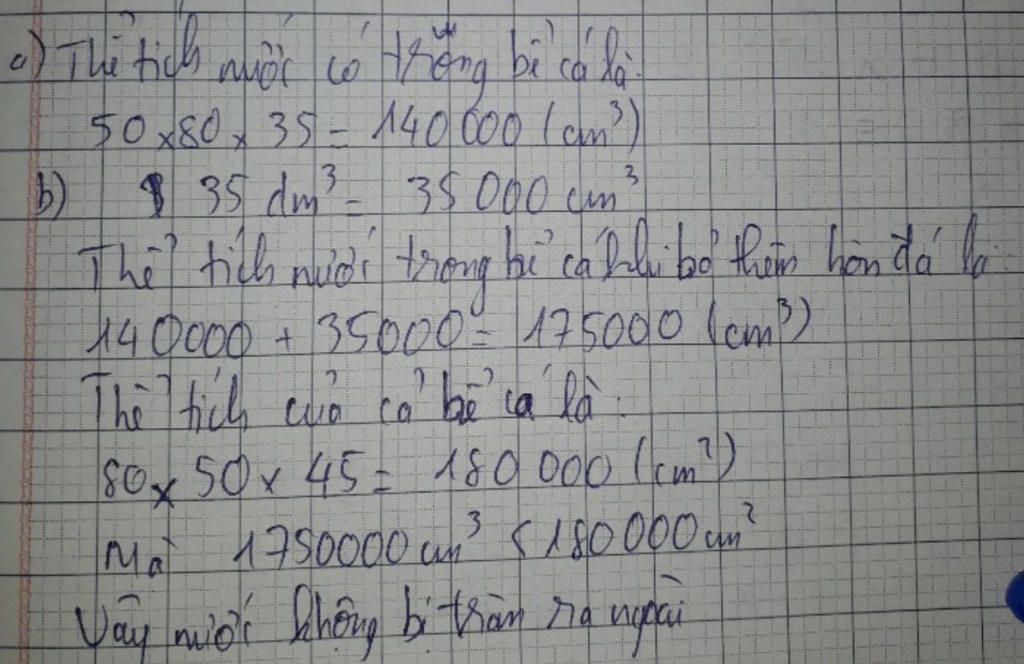 a) Thể tích nước có trong bể cá là:
50 x 80 x 35 = 140 000 (cm³)
b) 35 dm³ = 35 000 cm³
Thể tích nước trong bể cá khi bỏ thêm hòn đá là:
140000 + 35000 = 175000 (cm³)
Thể tích của cả bể cá là:
80 x 50 x 45 = 180 000 (cm²)
Mà 1750000 cm³ < 180 000 cm²
Vậy nước không bị tràn ra ngoài